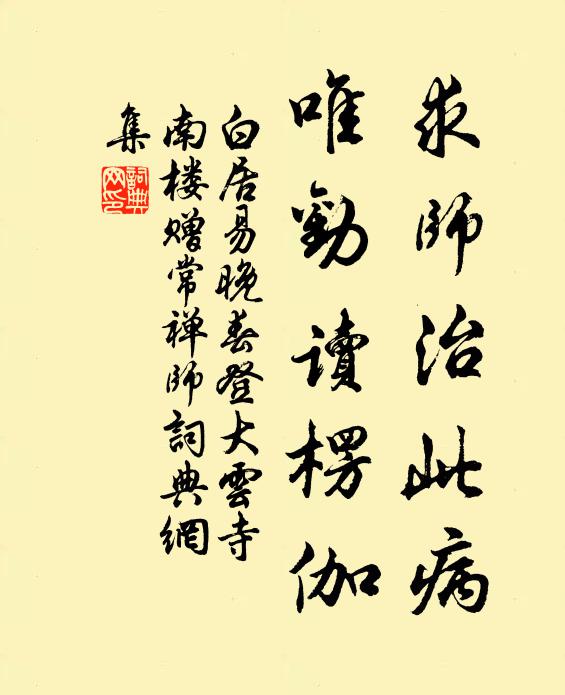 求師治此病
唯勸讀楞伽
白居易晚春登大雲寺
南楼赠常禅師詞典網
集
詞典網印